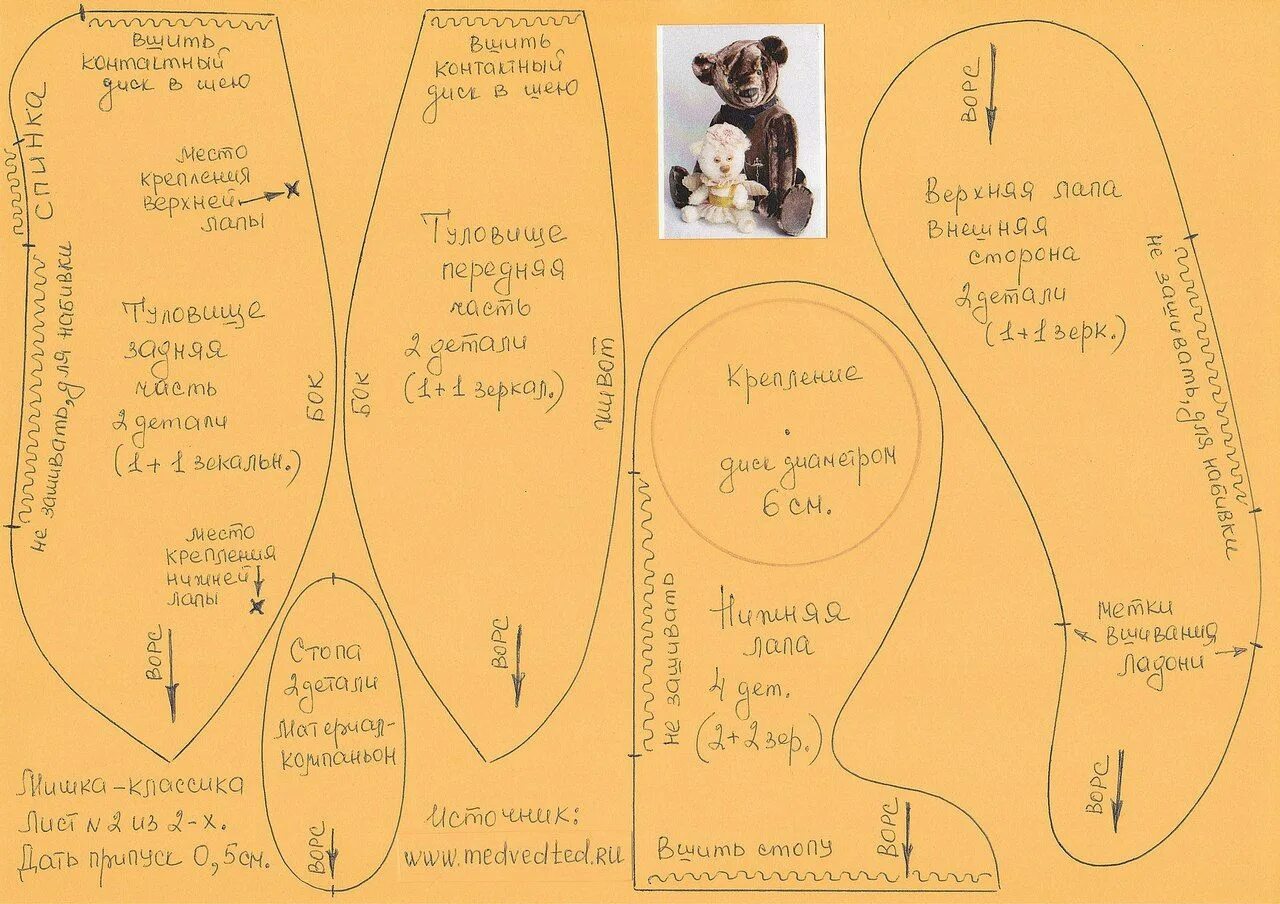 Вшить
контактный
диск в шею
СПИНКА
Место
крепления
верхней
лапы
Туловище
задняя
часть
2 детали
(1+1 зекальн.)
БОК
не зашивать, для набивки
место
крепления
нижней
лапы
ВОРС
Вшить
контактный
диск в шею
Туловище
передняя
часть
2 детали
(1+1 зеркал.)
БОК
ЖИВОТ
ВОРС
Стопа
2 детали
Материал-
компаньон
ВОРС
Мишка-классика
Лист №2 из 2-х.
Дать припуск 0,5см.
Источник:
www.medvedted.ru
Крепление
диск диаметром
6 см.
не зашивать
Нижняя
лапа
4 дет.
(2+2 зер.)
Вшить стопу
ВОРС
ВОРС
Верхняя лапа
внешняя
сторона
2 детали
(1+1 зерк.)
не зашивать, для набивки
метки
вшивания
ладони
ВОРС